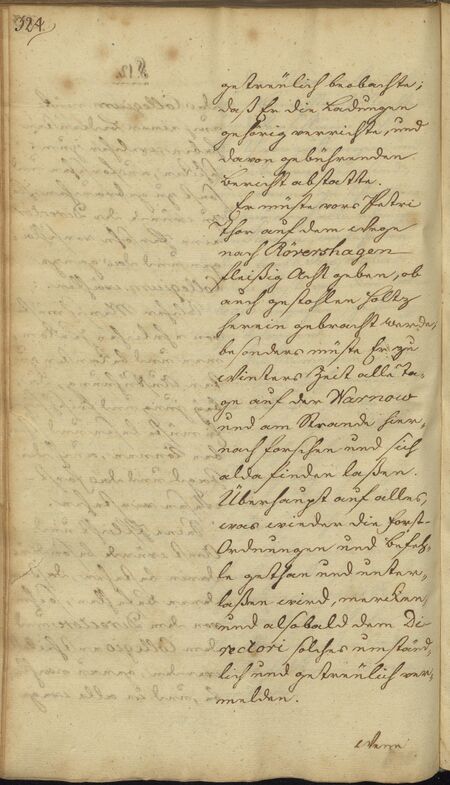 324.
getreulich beobachte;
daß Er die Ladungen
gehörig verrichte, und
davon gebührenden
Bericht abstatte.
Er müste vors Petri
Thor auf dem Wege
nach Rövershagen
fleißig Acht geben, ob
auch gestohlen Holtz
herein gebracht werde,
besonders müste Er zu
Winters Zeit alle Ta-
ge auf der Warnow
und am Strande hier-
nach forschen und sich
alda finden laßen.
Überhaupt auf alles,
was wieder die Forst-
Ordnungen und Befeh-
le gethan und unter-
laßen wird, mercken,
und alsobald dem Di-
rectori solches umständ-
lich und getreulich ver-
melden.
Wenn